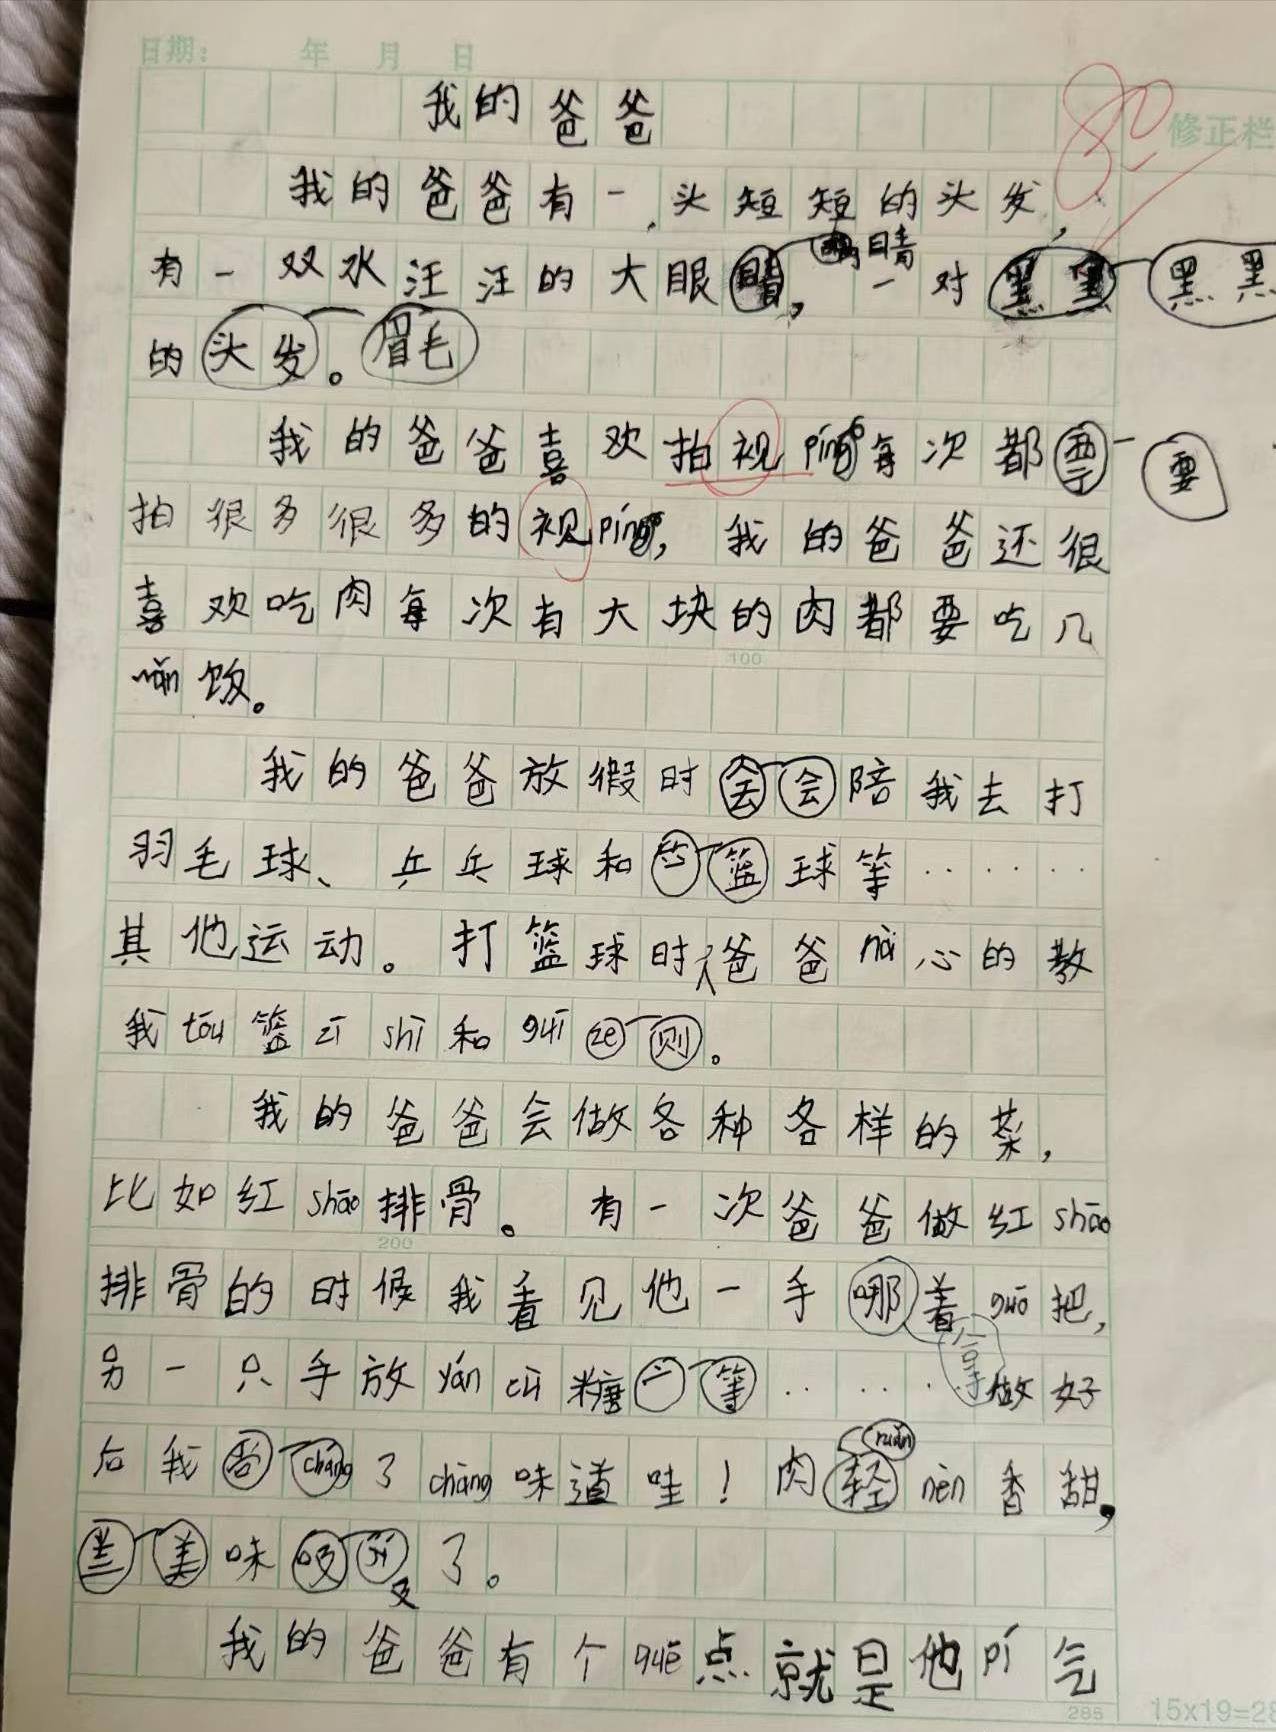 日期： 年 月 日
我的爸爸
80
修正栏
我的爸爸有一头短短的头发，
有一双水汪汪的大眼睛，睛一对黑黑黑黑
的头发。眉毛
我的爸爸喜欢拍视pín每次都要要
拍很多很多的视pín，我的爸爸还很
喜欢吃肉每次有大块的肉都要吃几
wǎn饭。
100
我的爸爸放假时会会陪我去打
羽毛球、乒乓球和篮球等……
其他运动。打篮球时，爸爸nài心的教
我tóu篮zī shì和guī ze则。
我的爸爸会做各种各样的菜，
比如红shāo排骨。有一次爸爸做红shāo
200
排骨的时候我看见他一手哪着guō把，
拿
另一只手放yán cù糖等……做好
后我cháng了cháng味道哇！肉轻ruǎn nèn香甜，
美味极jí了。
我的爸爸有个quē点就是他pí气
285
15x19=28